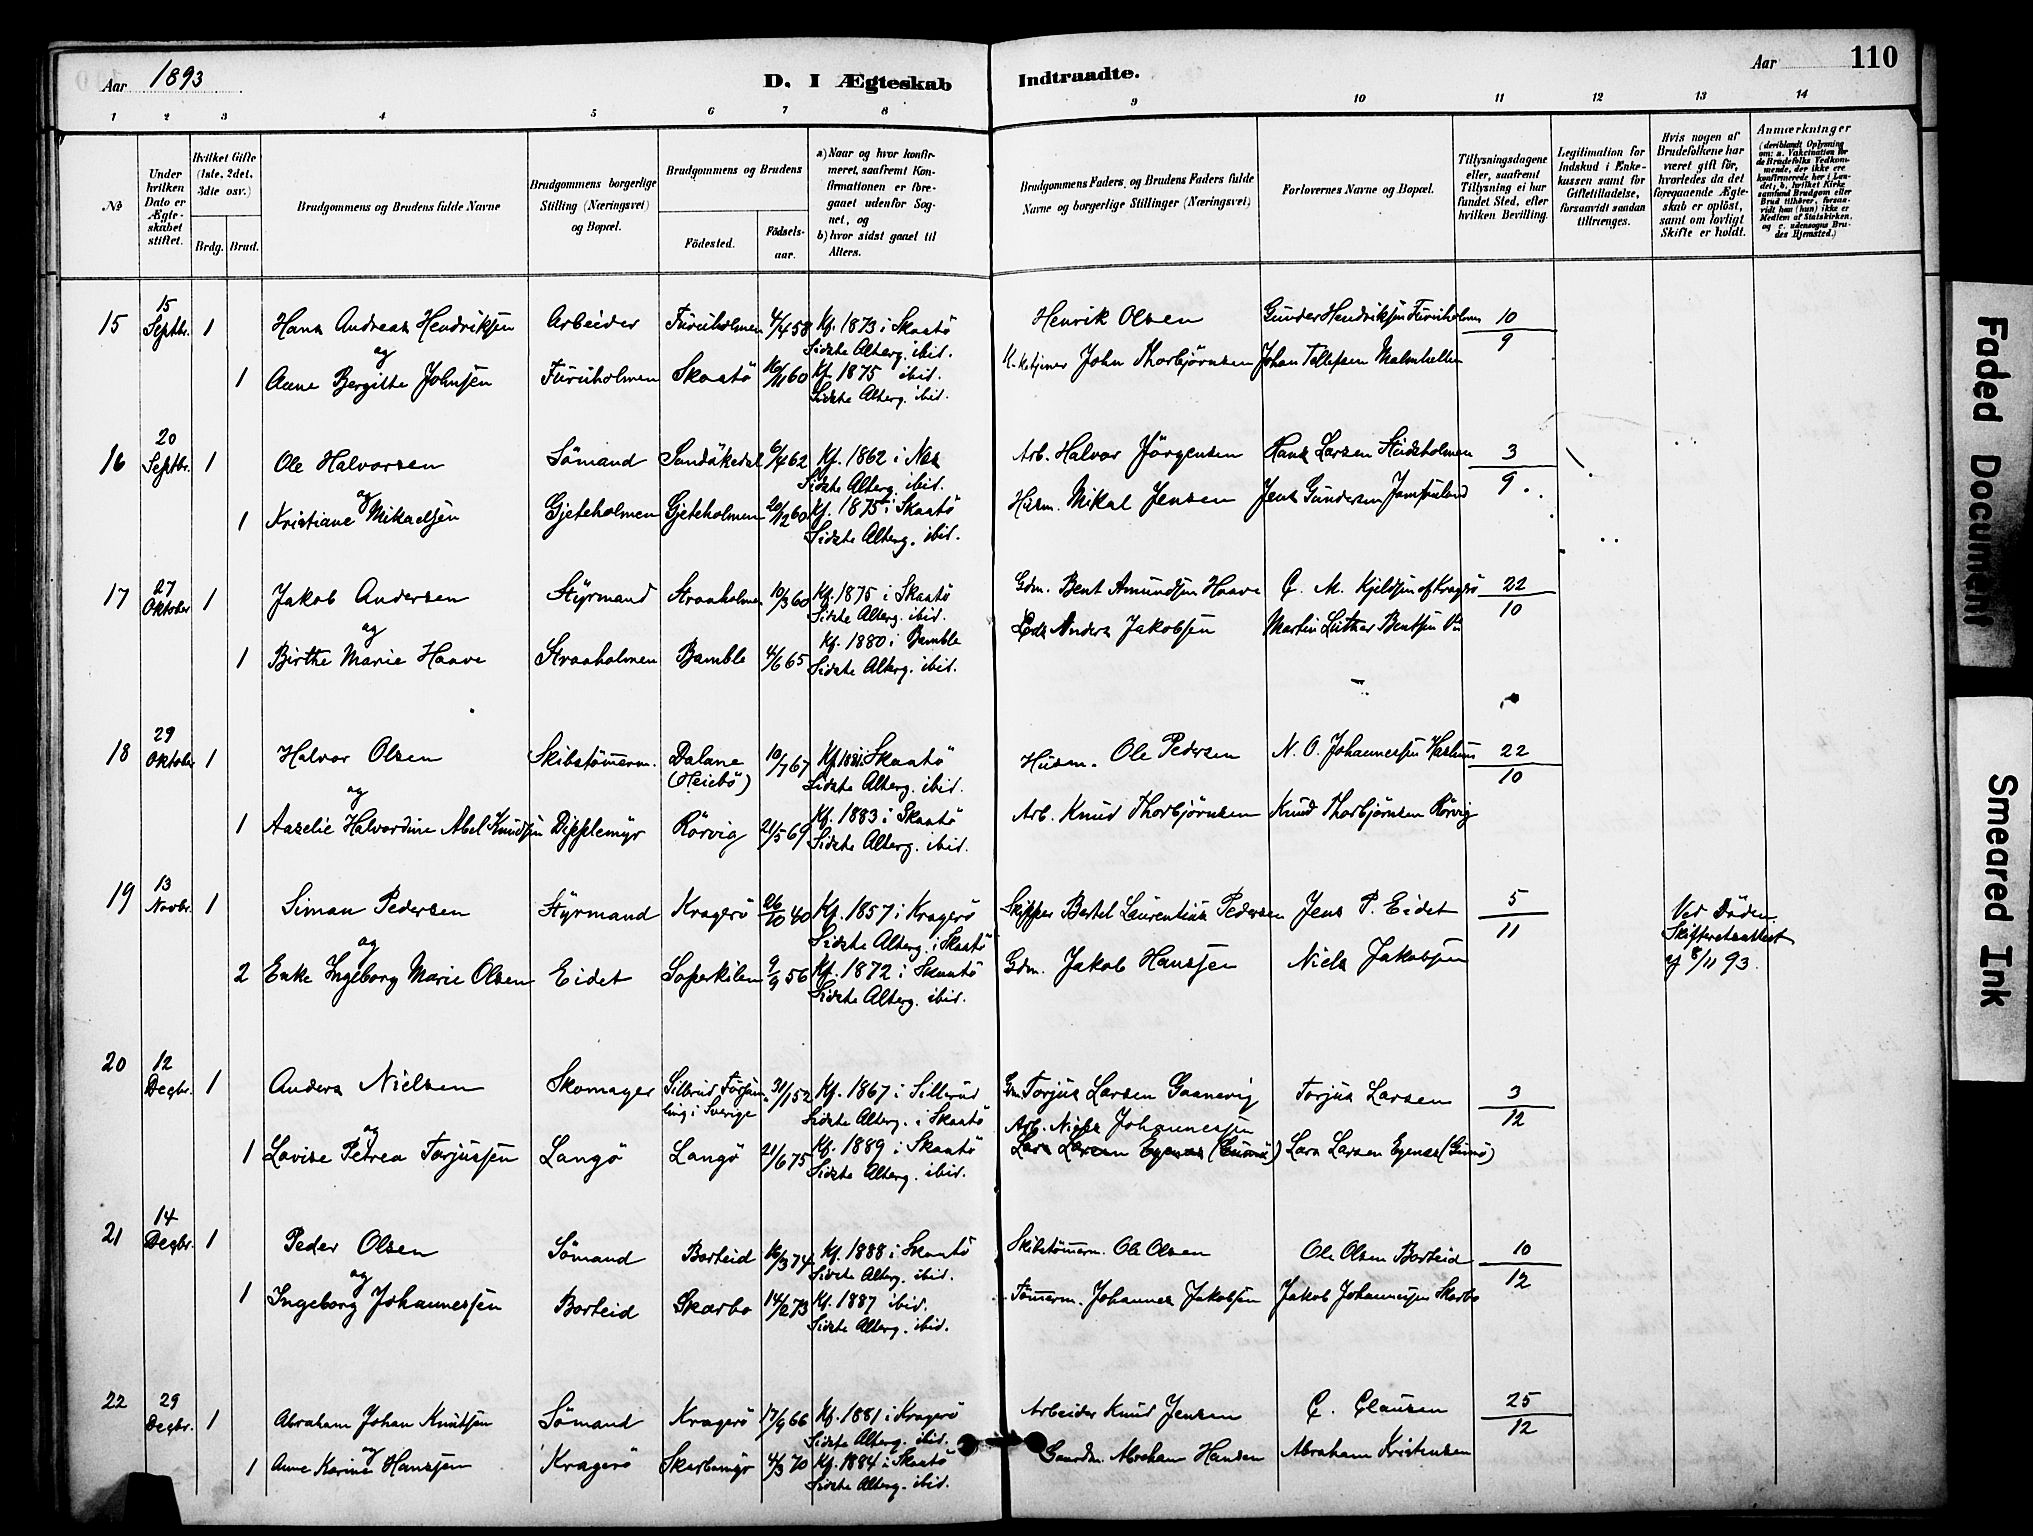 Aar 1893
D. I Ægteskab Indtraadte.
Aar 110
1 2 3 4 5 6 7 8 9 10 11 12 13 14
№
Under hvilken Dato er Ægteskabet stiftet.
Hvilket Gifte (1ste, 2det, 3die osv.)
Brdg. Brud.
Brudgommens og Brudens fulde Navne
Brudgommens borgerlige Stilling (Næringsvei) og Bopæl.
Brudgommens og Brudens
Födested.
Födselsaar.
a) Naar og hvor konfirmeret, saafremt Konfirmationen er foregaaet udenfor Sognet, og
b) hvor sidst gaaet til Alters.
Brudgommens Faders og Brudens Faders fulde Navne og borgerlige Stillinger (Næringsvei)
Forlovernes Navne og Bopæl.
Tillysningsdagene eller, saafremt Tillysning ei har fundet Sted, efter hvilken Bevilling.
Legitimation for Indskud i Enkekassen samt for Giftetilladelse, forsaavidt saadan tiltrænges.
Hvis nogen af Brudefolkene har været gift för, hvorledes da det foregaaende Ægteskab er oplöst, samt om lovligt Skifte er holdt.
Anmærkninger (deriblandt Oplysning om: a. Vakcination for de Brudefolks Vedkommende, der ikke ere konfirmerede her i Landet; b. hvilket Kirkesamfund Brudgom eller Brud tilhörer, forsaavidt han (hun) ikke er Medlem af Statskirken, og c. udensogns Brudes Hjemsted.)
15 15 Septbr. 1 Hans Andreas Hendriksen Arbeider Furuholmen 4/4 58 Kf. 1873 i Skaatö Henrik Olsen Gunder Hendriksen Furuholmen 10/9
og Sidste Alterg. ibid.
1 Anne Bergitte Johnsen Furuholmen Skaatö 16/11 60 Kf. 1875 ibid. John Thorbjörnsen Johan Tellefsen
Sidste Alterg. ibid.
16 20 Septbr. 1 Ole Halvorsen Sömand Sandökedal 6/4 62 Kf. 1862 i Næs Arb. Halvor Jörgensen Hans Larsen 3/9
og Sidste Alterg. ibid.
1 Kristiane Mikaelsen Gjeteholmen Gjeteholmen 20/12 60 Kf. 1875 i Skaatö Husm. Mikal Jensen Jens Gundersen Jomfruland
Sidste Alterg. ibid.
17 27 Oktober 1 Jakob Andersen Styrmand Straaholmen 10/3 60 Kf. 1875 i Skaatö Gdm. Bent Amundsen Haave C. M. Kjeldsen af Kragerö 22/10
og Sidste Alterg. ibid.
1 Birthe Marie Haave Straaholmen Bamble 4/6 65 Kf. 1880 i Bamble Anders Jakobsen Martin Luther Bentsen
Sidste Alterg. ibid.
18 29 Oktober 1 Halvor Olsen Skibstömerm. Dalane (Heiebö) 10/7 67 Kf. 1882 i Skaatö Husm. Ole Pedersen N. O. Johannessen 22/10
og Sidste Alterg. ibid.
1 Aaselie Halvordine Abel Knudsen Dipplemyr Rörvig 21/5 69 Kf. 1883 i Skaatö Arb. Knud Thorbjörnsen Knud Thorbjörnsen Rörvig
Sidste Alterg. ibid.
19 13 Novbr. 1 Simon Pedersen Styrmand Kragerö 26/10 40 Kf. 1857 i Kragerö Skipper Bertel Laurentius Pedersen Jens P. Eidet 5/11 Ved Döden.
og Sidste Alterg. i Skaatö Skifteretsattest
2 Enke Ingeborg Marie Olsen Eidet Soperkilen 9/9 56 Kf. 1872 i Skaatö Gdm. Jakob Hanssen Niels Jakobsen af 8/11 93.
Sidste Alterg. ibid.
20 12 Decbr. 1 Anders Nielsen Skomager Sillerud Forsamling i Sverige 31/1 52 Kf. 1867 i Sillerud Gm. Torjus Larsen Gaasevig Torjus Larsen 3/12
og Sidste Alterg. i Skaatö Arb. Niels Johannessen
1 Lovise Petrea Torjussen Langö Langö 21/6 75 Kf. 1889 i Skaatö Lars Larsen Lars Larsen
Sidste Alterg. ibid.
21 14 Decbr. 1 Peder Olsen Sömand Borteid 16/3 74 Kf. 1888 i Skaatö Skibstömerm. Ole Olsen Ole Olsen Borteid 10/12
og Sidste Alterg. ibid.
1 Ingeborg Johannessen Borteid Skarbo 14/2 73 Kf. 1887 ibid. Tömerm. Johannes Jakobsen Jakob Johannessen Skarbo
Sidste Alterg. ibid.
22 29 Decbr. 1 Abraham Johan Knutsen Sömand Kragerö 17/9 66 Kf. 1881 i Kragerö Arbeider Knud Jensen C. Clausen 25/12
og Sidste Alterg. ibid.
1 Anne Karine Hanssen Kragerö Skarbumyr 4/3 70 Kf. 1884 i Skaatö Gaardm. Abraham Hansen Abraham Kristensen
Sidste Alterg. ibid.
Faded Document
Smeared Ink